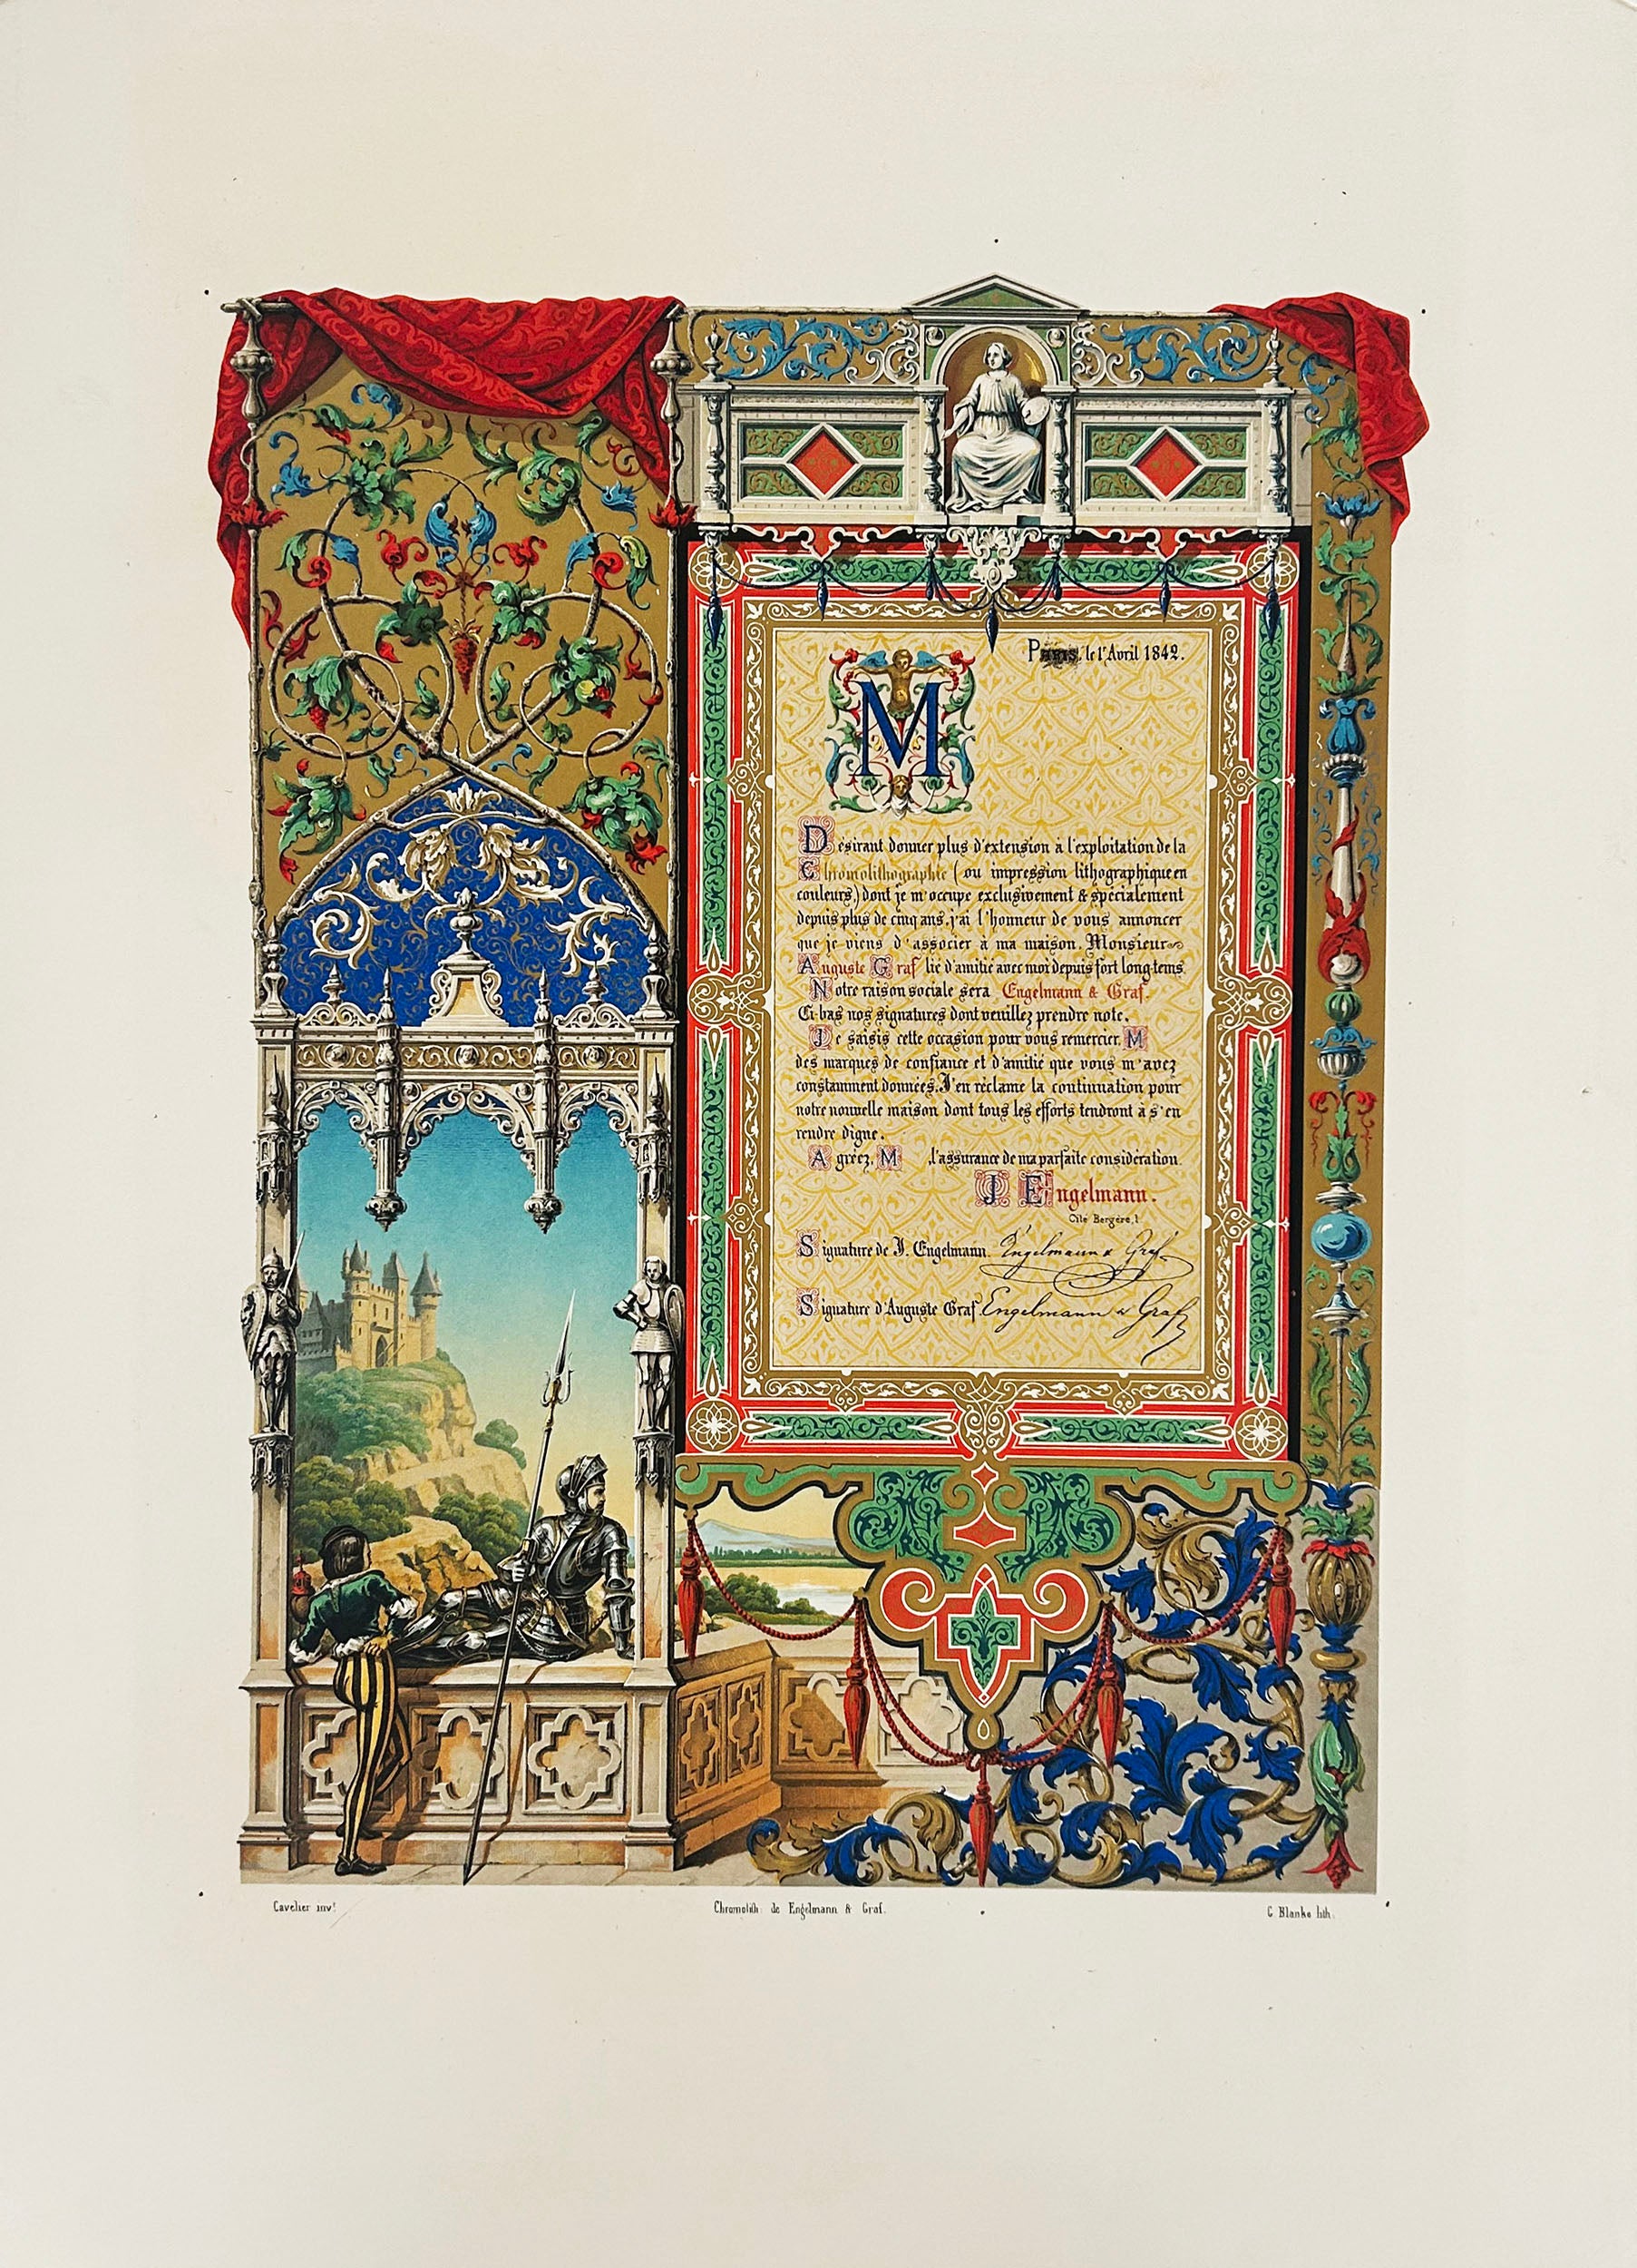 Paris, le 1r Avril 1842.
M
Désirant donner plus d'extension à l'exploitation de la
Chromolithographie (ou impression lithographique en
couleurs,) dont je m'occupe exclusivement & spécialement
depuis plus de cinq ans, j'ai l'honneur de vous annoncer
que je viens d'associer à ma maison, Monsieur
Auguste Graf lié d'amitié avec moi depuis fort long-tems.
Notre raison sociale sera Engelmann & Graf.
Ci-bas nos signatures dont veuillez prendre note.
Je saisis cette occasion pour vous remercier, M
des marques de confiance et d'amitié que vous m'avez
constamment données. J'en réclame la continuation pour
notre nouvelle maison dont tous les efforts tendront à s'en
rendre digne.
Agréez, M ,l'assurance de ma parfaite considération.
J Engelmann.
Cité Bergère, 1
Signature de J. Engelmann. Engelmann & Graf
Signature d'Auguste Graf. Engelmann & Graf
Cavelier invt.
Chromolith: de Engelmann & Graf.
G Blanke lith: